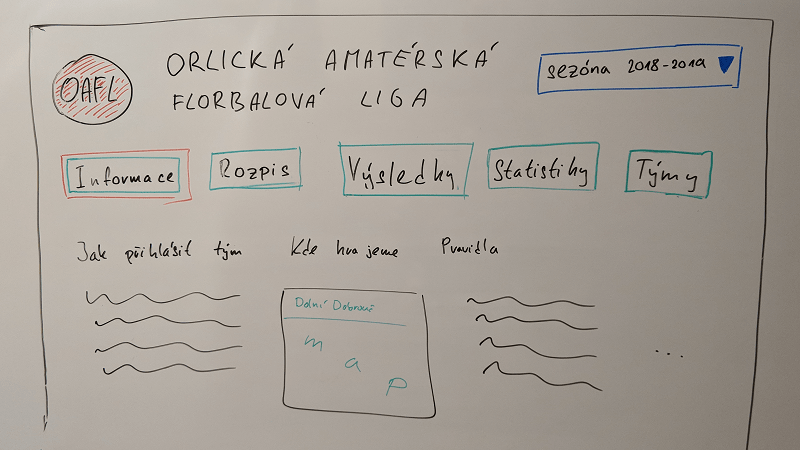 OAFL
ORLICKÁ AMATÉRSKÁ
FLORBALOVÁ LIGA
sezóna 2018-2019
Informace
Rozpis
Výsledky
Statistiky
Týmy
Jak přihlásit tým
Kde hrajeme
Pravidla
Dolní Dobrouč
m
a
p
...